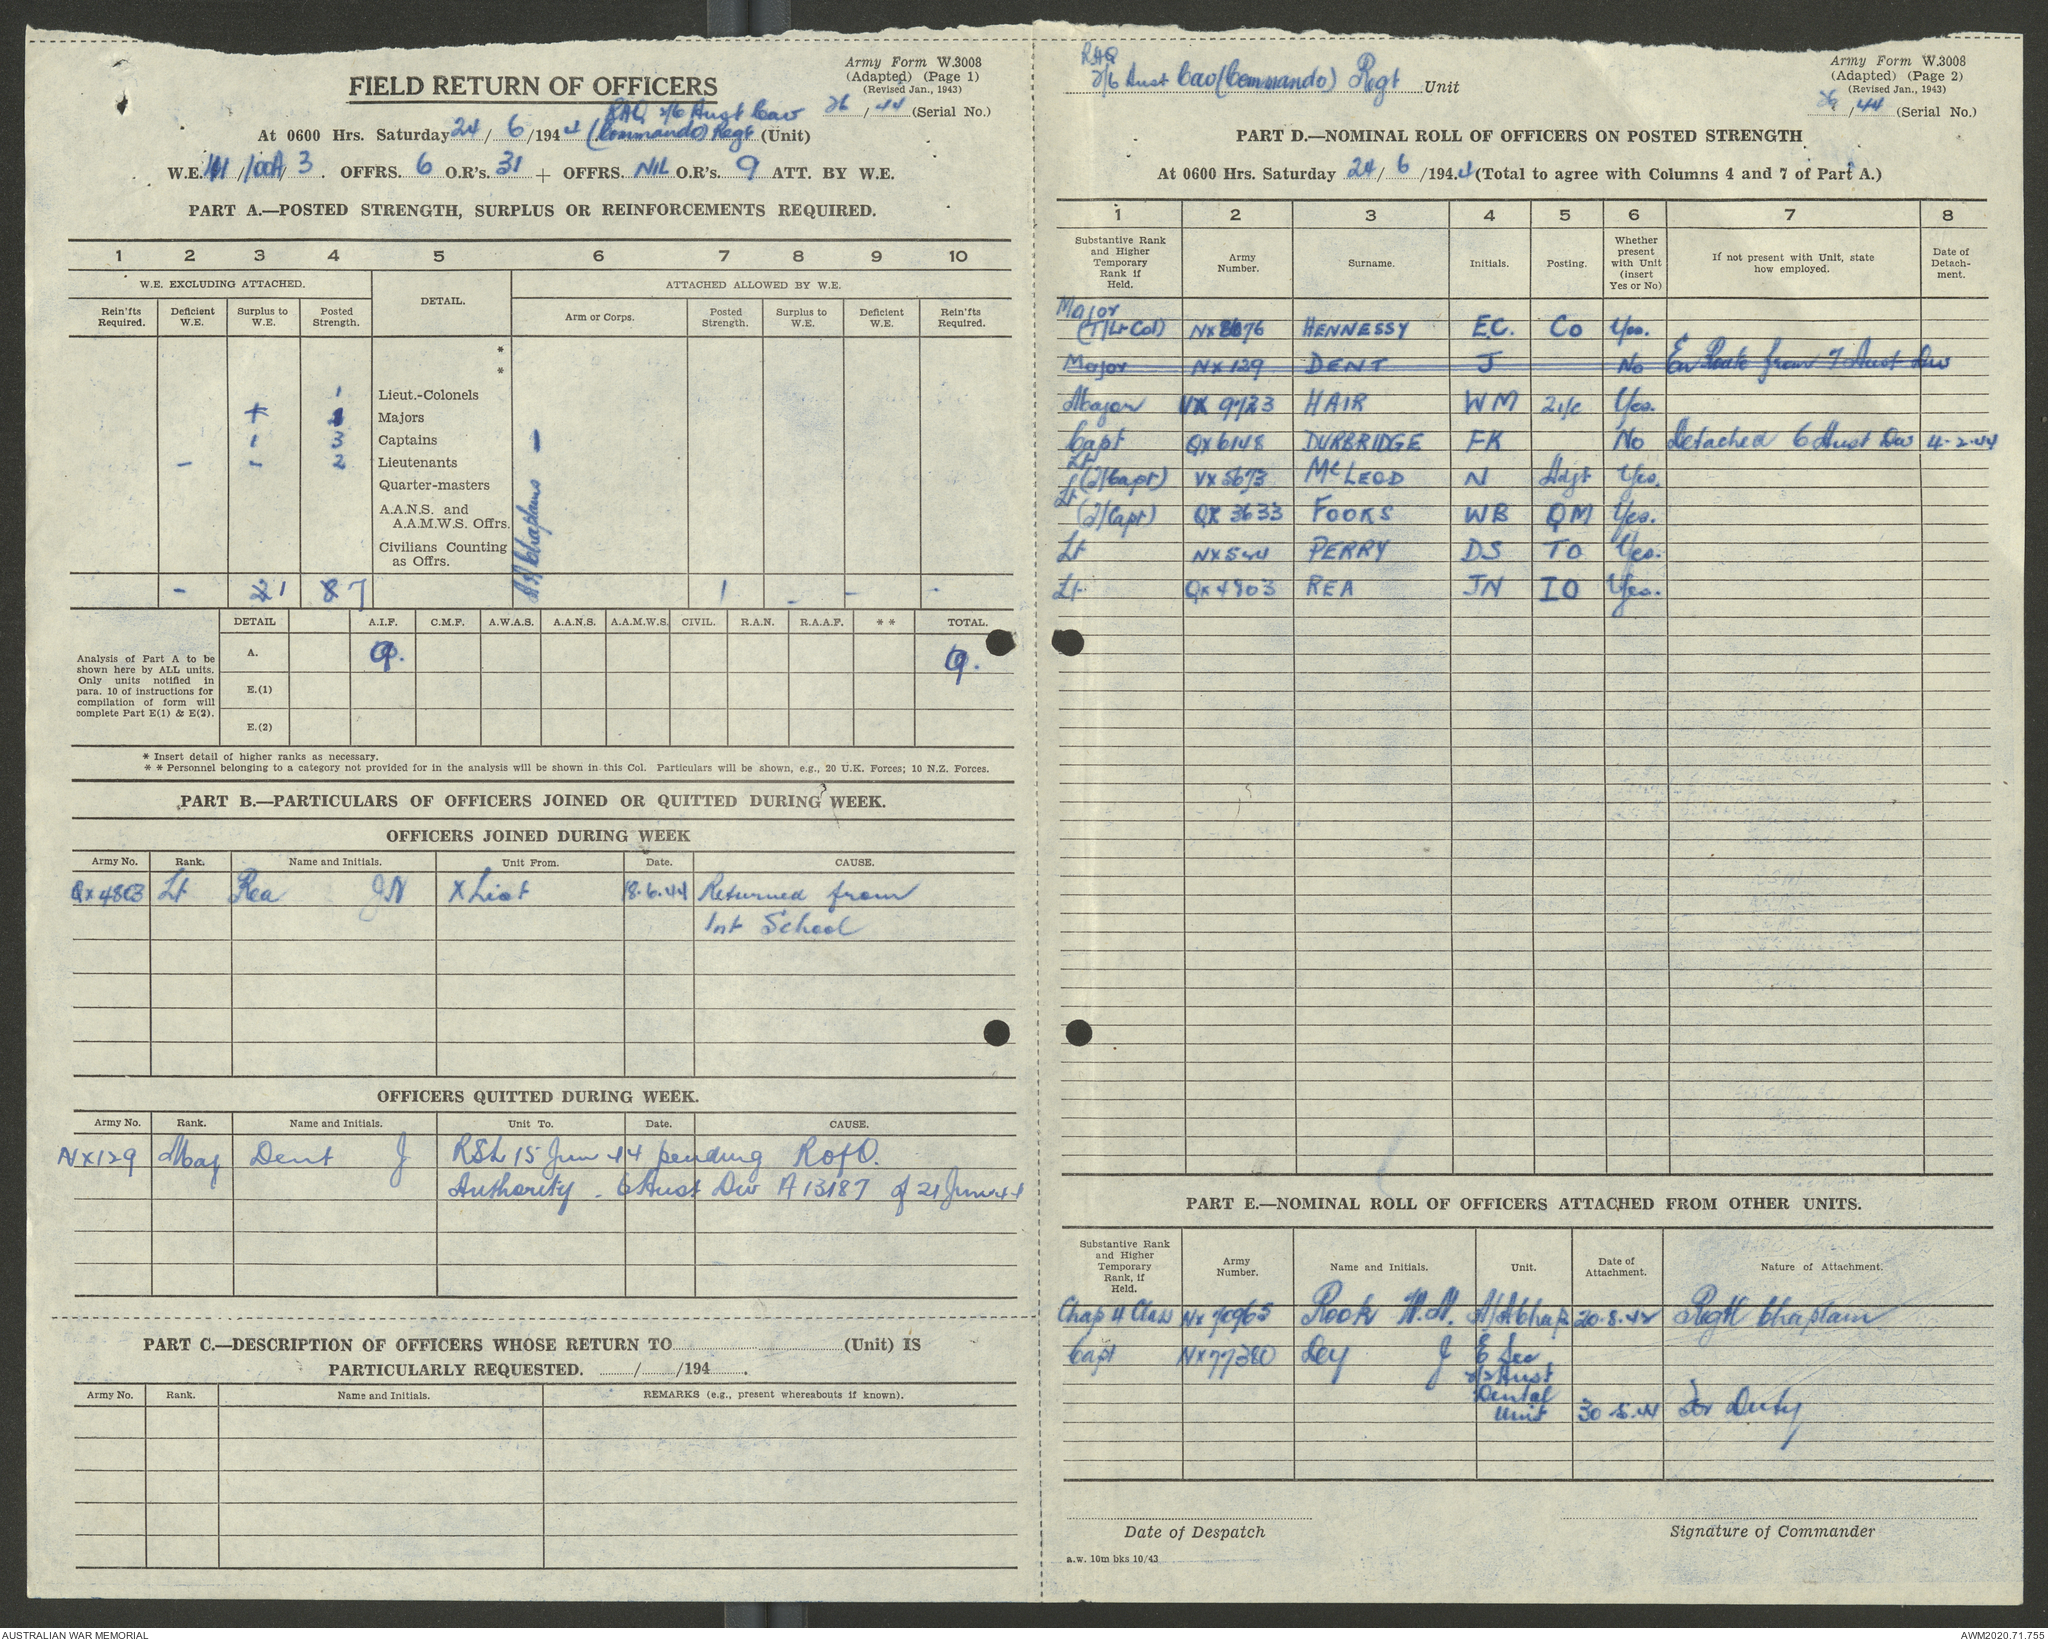 Army Form W.3008
(Adapted) (Page 1)
(Revised Jan., 1943)
FIELD RETURN OF OFFICERS
26/44 (Serial No.)
RHQ 2/6 Aust Cav
At 0600 Hrs. Saturday 24/6/1944 (Commando) Regt (Unit)
W.E. /100A/3. OFFRS. 6 O.R's. 31 + OFFRS. NIL O.R's. 9 ATT. BY W.E.
PART A.—POSTED STRENGTH, SURPLUS OR REINFORCEMENTS REQUIRED.
1 2 3 4 5 6 7 8 9 10
W.E. EXCLUDING ATTACHED. DETAIL. ATTACHED ALLOWED BY W.E.
Rein'fts Required. Deficient W.E. Surplus to W.E. Posted Strength. Arm or Corps. Posted Strength. Surplus to W.E. Deficient W.E. Rein'fts Required.
*
*
1 Lieut.-Colonels
+ 1 Majors
1 3 Captains
- - 2 Lieutenants
Quarter-masters
A.A.N.S. and
A.A.M.W.S. Offrs.
Civilians Counting
as Offrs.
Chaplains
- 1 7 1 - - -
DETAIL A.I.F. C.M.F. A.W.A.S. A.A.N.S. A.A.M.W.S. CIVIL. R.A.N. R.A.A.F. * * TOTAL.
Analysis of Part A to be shown here by ALL units. Only units notified in para. 10 of instructions for compilation of form will complete Part E(1) & E(2).
A. 9. 9.
E.(1)
E.(2)
* Insert detail of higher ranks as necessary.
* * Personnel belonging to a category not provided for in the analysis will be shown in this Col. Particulars will be shown, e.g., 20 U.K. Forces; 10 N.Z. Forces.
PART B.—PARTICULARS OF OFFICERS JOINED OR QUITTED DURING WEEK.
OFFICERS JOINED DURING WEEK
Army No. Rank. Name and Initials. Unit From. Date. CAUSE.
QX4803 Lt Rea JN X List 18.6.44 Returned from
Int School
OFFICERS QUITTED DURING WEEK.
Army No. Rank. Name and Initials. Unit To. Date. CAUSE.
NX129 Maj Dent J RSL 15 Jun 44 pending R of O.
Authority - 6 Aust Div A13187 of 21 Jun 44
PART C.—DESCRIPTION OF OFFICERS WHOSE RETURN TO (Unit) IS
PARTICULARLY REQUESTED. / /194 .
Army No. Rank. Name and Initials. REMARKS (e.g., present whereabouts if known).
RHQ
2/6 Aust Cav (Commando) Regt Unit
Army Form W.3008
(Adapted) (Page 2)
(Revised Jan., 1943)
26/44 (Serial No.)
PART D.—NOMINAL ROLL OF OFFICERS ON POSTED STRENGTH
At 0600 Hrs. Saturday 24/6/1944 (Total to agree with Columns 4 and 7 of Part A.)
1 2 3 4 5 6 7 8
Substantive Rank and Higher Temporary Rank if Held. Army Number. Surname. Initials. Posting. Whether present with Unit (insert Yes or No) If not present with Unit, state how employed. Date of Detachment.
Major
(T/Lt Col) HENNESSY E.C. CO Yes.
Major NX129 DENT J No En Route from 7 Aust Div
Major VX 9723 HAIR WM 2i/c Yes.
Capt QX6148 DURBRIDGE FK No Detached 6 Aust Div 4.2.44
Lt
(T/Capt) VX5673 McLEOD N Adjt Yes.
Lt
(T/Capt) QX 3633 FOOKS WB QM Yes.
Lt NX544 PERRY DS TO Yes.
Lt QX4803 REA JN IO Yes.
PART E.—NOMINAL ROLL OF OFFICERS ATTACHED FROM OTHER UNITS.
Substantive Rank and Higher Temporary Rank, if Held. Army Number. Name and Initials. Unit. Date of Attachment. Nature of Attachment.
Chap 4 Class NX70965 Rook Chap 20.8.42 Regtl Chaplain
Capt NX77380 Ley J E Sec
2/2 Aust
Dental
Unit 30.5.44 For Duty
Date of Despatch Signature of Commander
a.w. 10m bks 10/43
AUSTRALIAN WAR MEMORIAL AWM2020.71.755